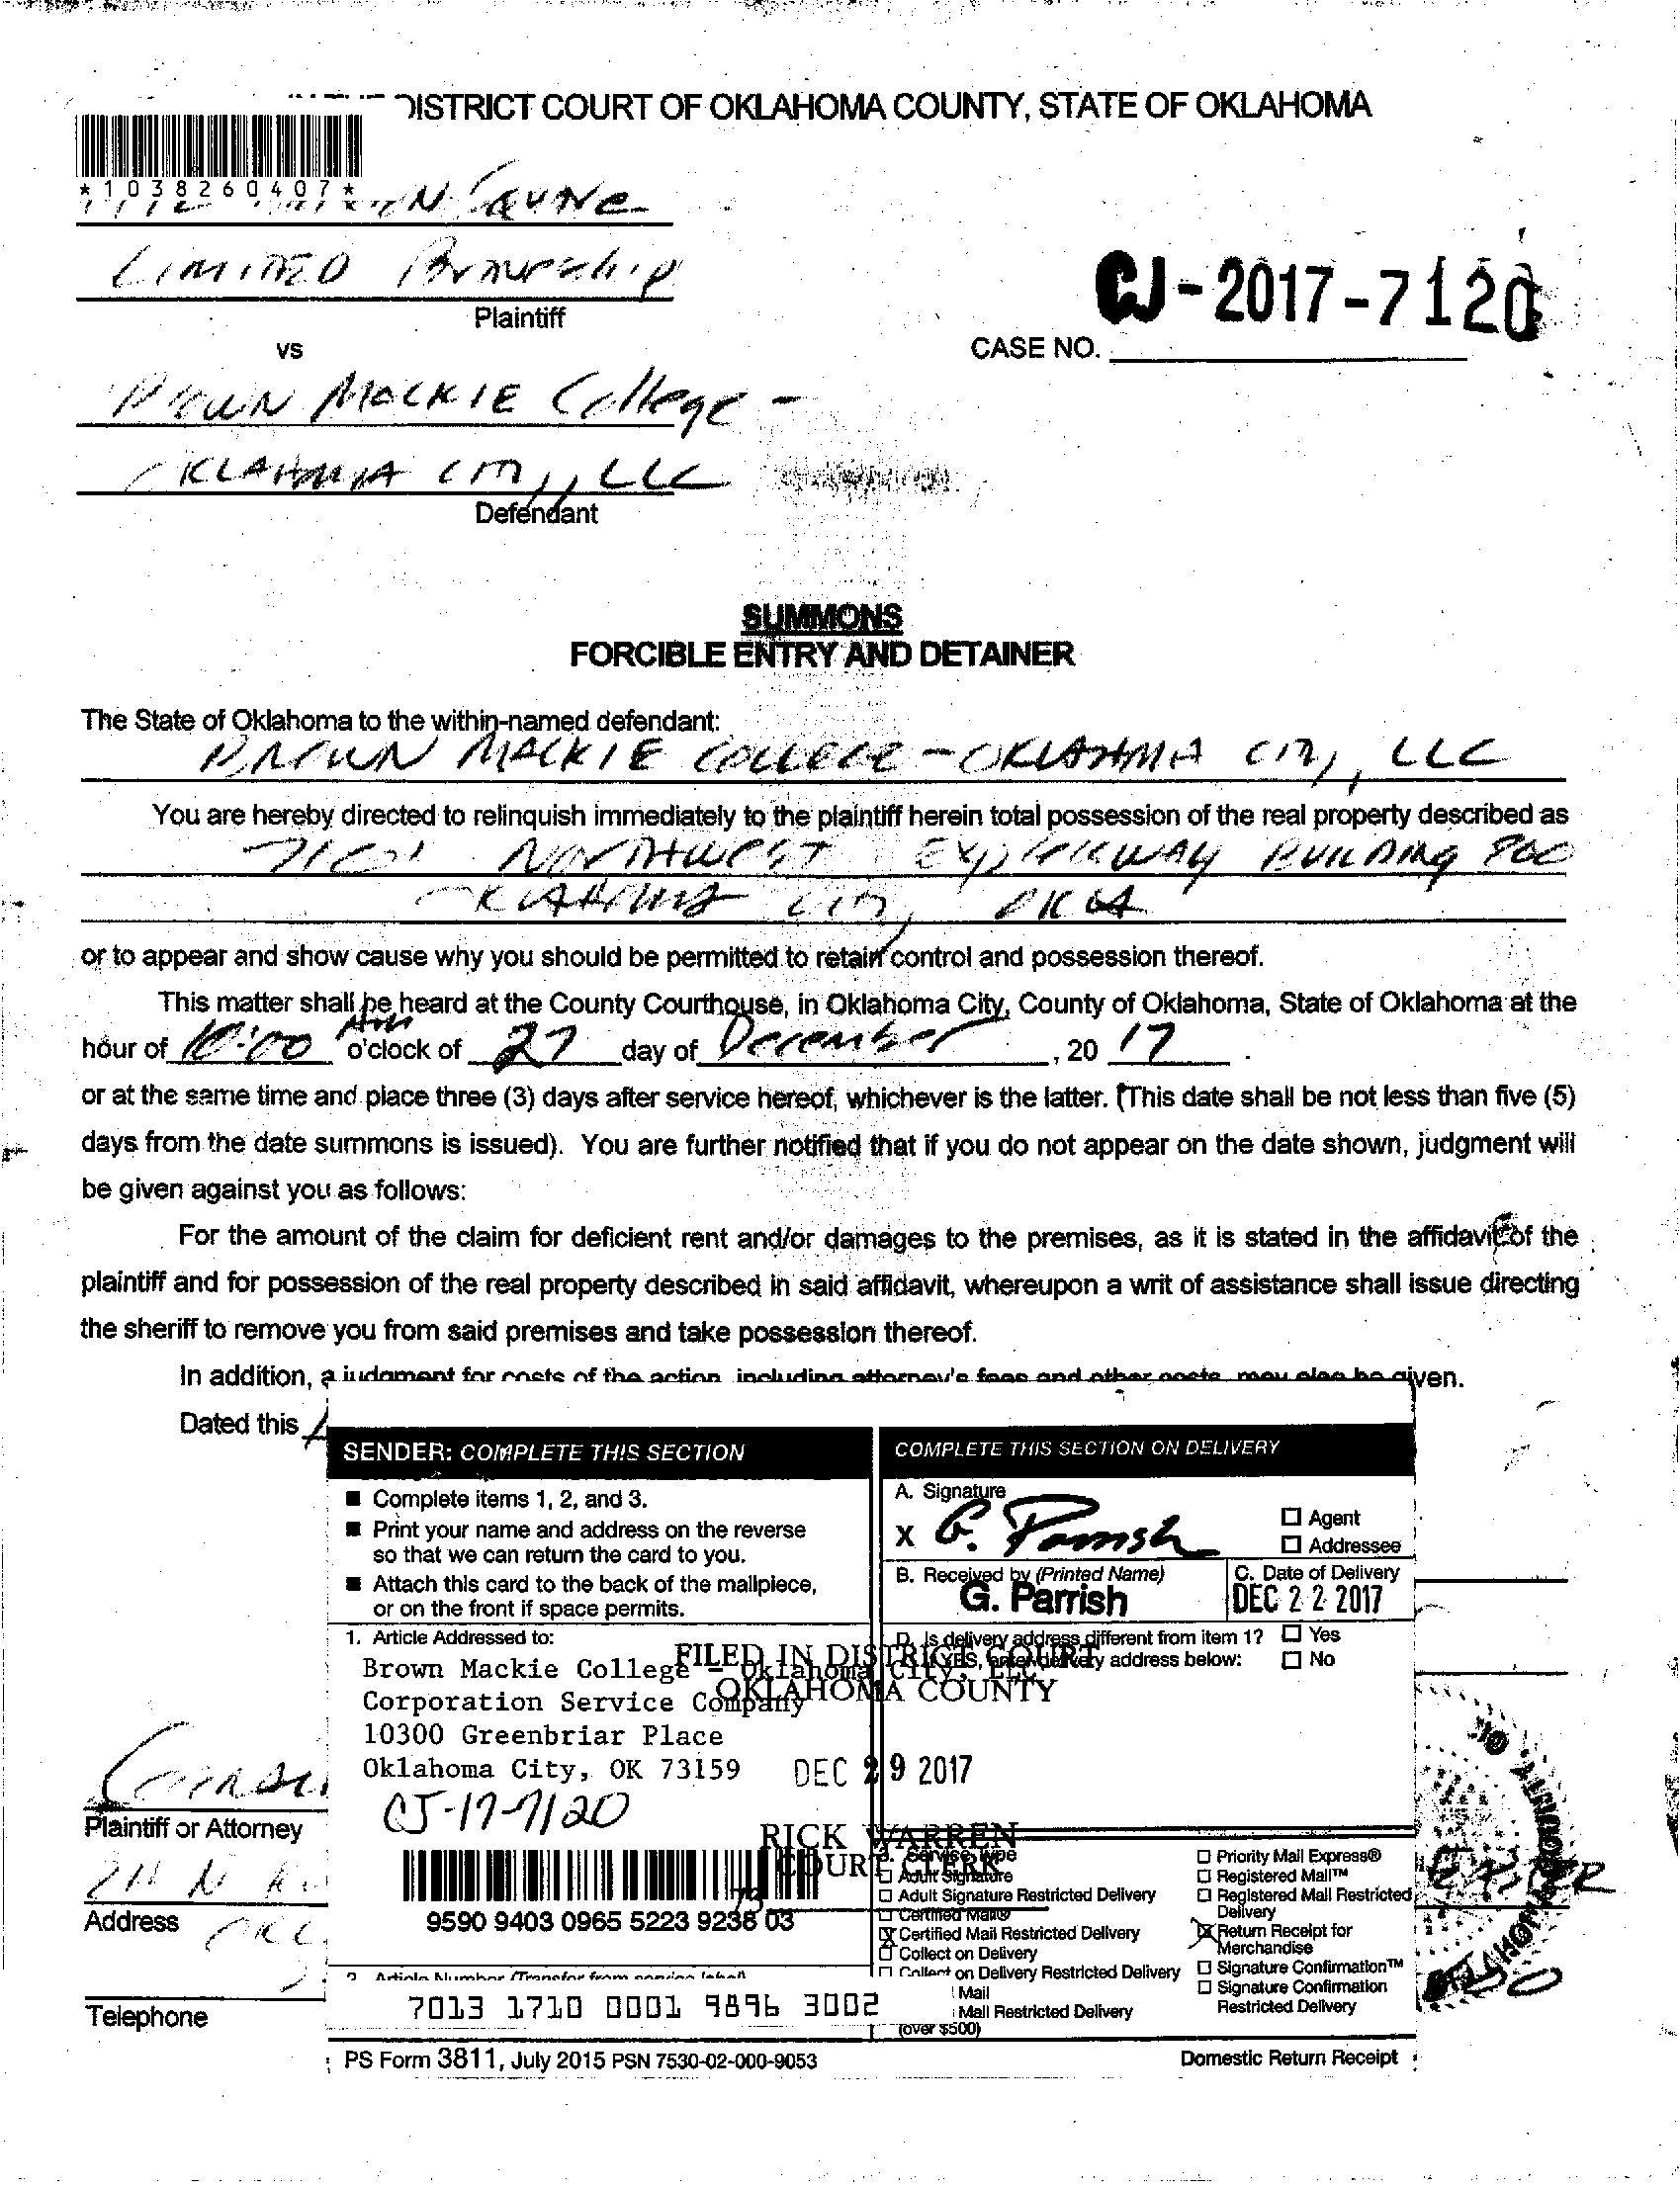 DISTRICT COURT OF OKLAHOMA COUNTY, STATE OF OKLAHOMA
*1038260407*
LIMITED Partnership
Plaintiff
CJ-2017-7120
CASE NO.
vs
Brown MACKIE College -
OKLAHOMA CITY, LLC
Defendant
SUMMONS
FORCIBLE ENTRY AND DETAINER
The State of Oklahoma to the within-named defendant:
BROWN MACKIE COLLEGE - OKLAHOMA CITY, LLC
You are hereby directed to relinquish immediately to the plaintiff herein total possession of the real property described as
NORTHWEST EXPRESSWAY BUILDING 800
OKLAHOMA CITY, OKLA
or to appear and show cause why you should be permitted to retain control and possession thereof.
This matter shall be heard at the County Courthouse, in Oklahoma City, County of Oklahoma, State of Oklahoma at the
hour of 10:00 AM o'clock of 27 day of December, 20 17.
or at the same time and place three (3) days after service hereof, whichever is the latter. (This date shall be not less than five (5)
days from the date summons is issued). You are further notified that if you do not appear on the date shown, judgment will
be given against you as follows:
For the amount of the claim for deficient rent and/or damages to the premises, as it is stated in the affidavit of the
plaintiff and for possession of the real property described in said affidavit, whereupon a writ of assistance shall issue directing
the sheriff to remove you from said premises and take possession thereof.
In addition, a judgment for costs of the action, including attorney's fees and other costs, may also be given.
Dated this
SENDER: COMPLETE THIS SECTION
■ Complete items 1, 2, and 3.
■ Print your name and address on the reverse
so that we can return the card to you.
■ Attach this card to the back of the mailpiece,
or on the front if space permits.
1. Article Addressed to:
Brown Mackie College - Oklahoma City, LLC
Corporation Service Company
10300 Greenbriar Place
Oklahoma City, OK 73159
CJ-17-7120
9590 9403 0965 5223 9238 03
2. Article Number (Transfer from service label)
7013 1710 0001 9896 3002
PS Form 3811, July 2015 PSN 7530-02-000-9053
COMPLETE THIS SECTION ON DELIVERY
A. Signature
X G. Parrish
☐ Agent
☐ Addressee
B. Received by (Printed Name)
G. Parrish
C. Date of Delivery
DEC 22 2017
D. Is delivery address different from item 1? ☐ Yes
If YES, enter delivery address below: ☐ No
FILED IN DISTRICT COURT
OKLAHOMA COUNTY
DEC 29 2017
RICK WARREN
COURT CLERK
73
3. Service Type
☐ Adult Signature
☐ Adult Signature Restricted Delivery
☐ Certified Mail®
☒ Certified Mail Restricted Delivery
☐ Collect on Delivery
☐ Collect on Delivery Restricted Delivery
Mail
Mail Restricted Delivery
(over $500)
☐ Priority Mail Express®
☐ Registered Mail™
☐ Registered Mail Restricted
Delivery
☒ Return Receipt for
Merchandise
☐ Signature Confirmation™
☐ Signature Confirmation
Restricted Delivery
Domestic Return Receipt
Plaintiff or Attorney
Address
Telephone